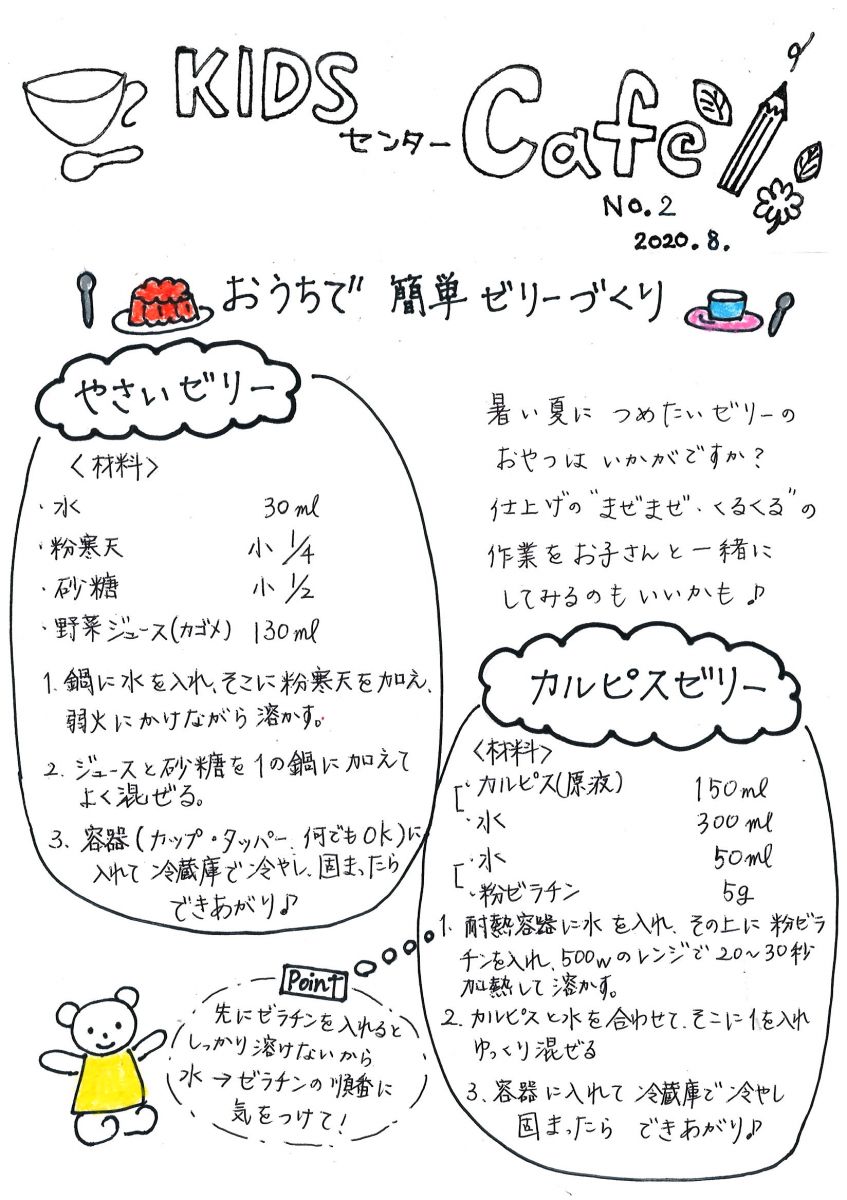 KIDS
センター Cafe
No.2
2020.8.
おうちで 簡単ゼリーづくり
やさいゼリー
〈材料〉
・水 30ml
・粉寒天 小 1/4
・砂糖 小 1/2
・野菜ジュース(カゴメ) 130ml
1. 鍋に水を入れ、そこに粉寒天を加え、
弱火にかけながら溶かす。
2. ジュースと砂糖を1の鍋に加えて
よく混ぜる。
3. 容器(カップ・タッパー、何でもOK)に
入れて冷蔵庫で冷やし、固まったら
できあがり♪
暑い夏に つめたいゼリーの
おやつは いかがですか?
仕上げの"まぜまぜ・くるくる"の
作業をお子さんと一緒に
してみるのもいいかも♪
カルピスゼリー
〈材料〉
・カルピス(原液) 150ml
・水 300ml
・水 50ml
・粉ゼラチン 5g
1. 耐熱容器に水を入れ、その上に粉ゼラ
チンを入れ、500wのレンジで20〜30秒
加熱して溶かす。
2. カルピスと水を合わせて、そこに1を入れ
ゆっくり混ぜる
3. 容器に入れて冷蔵庫で冷やし
固まったら できあがり♪
Point
先にゼラチンを入れると
しっかり溶けないから
水→ゼラチンの順番に
気をつけて!